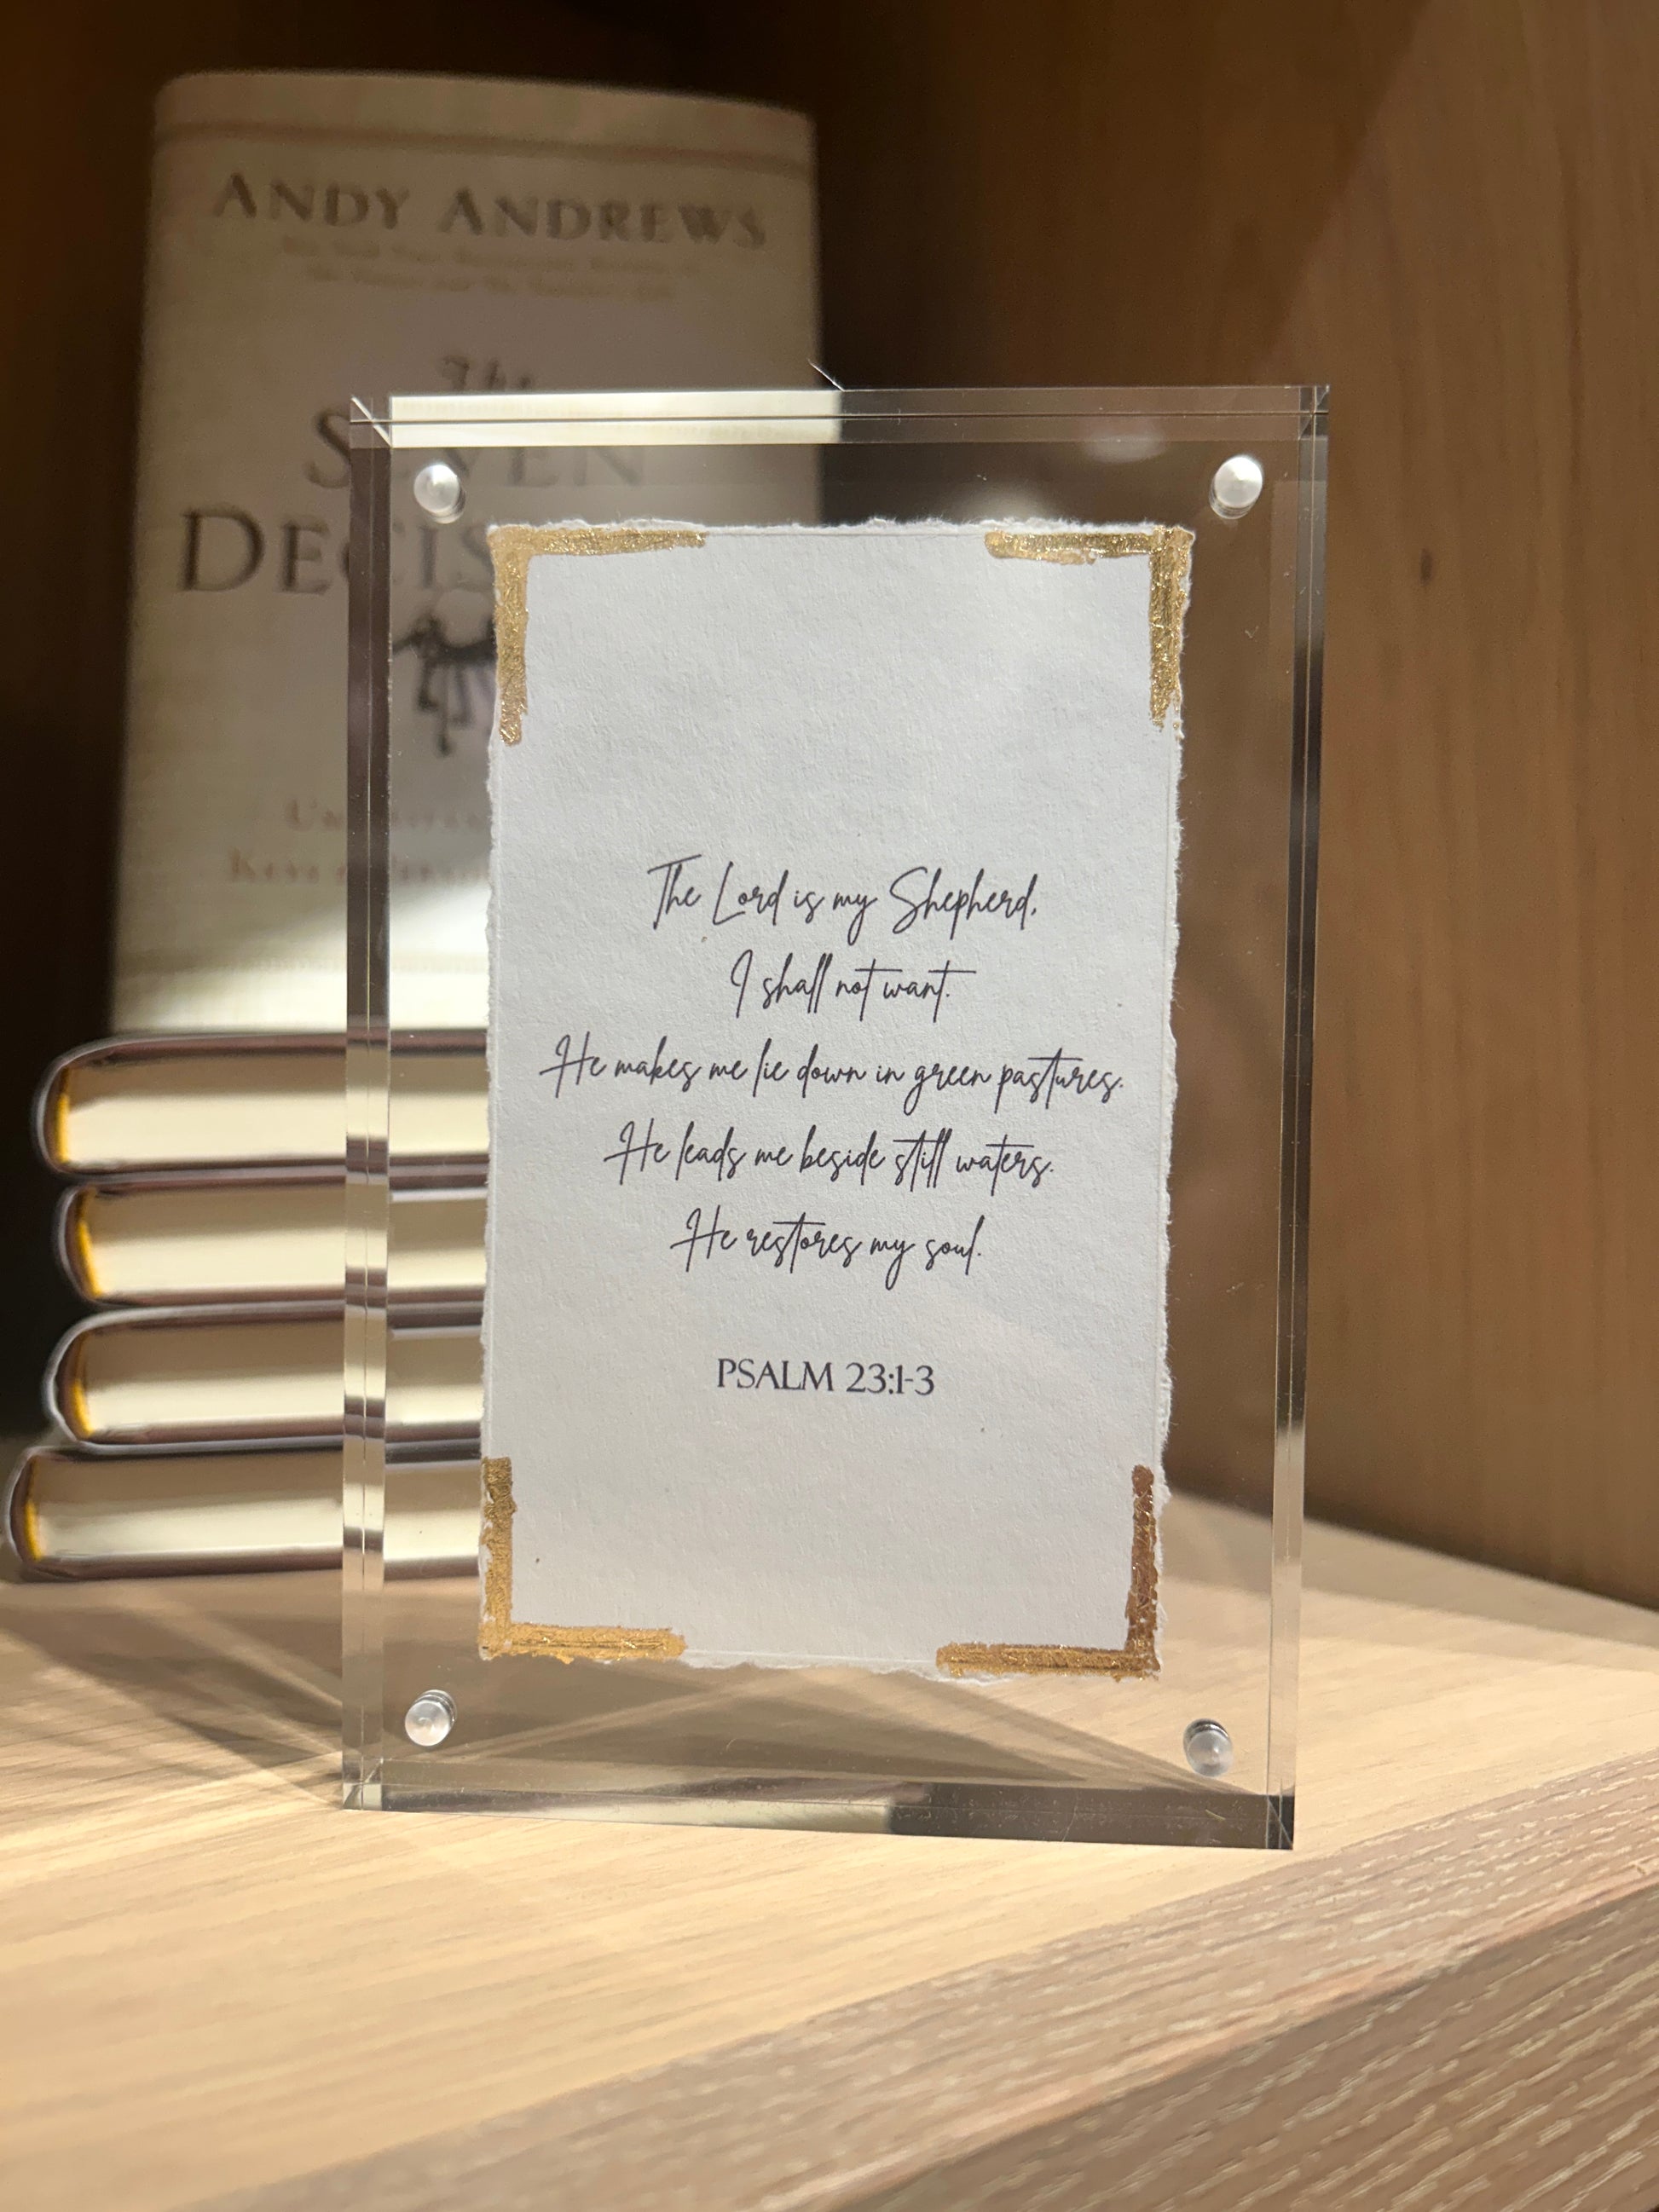 ANDY ANDREWS
The
SEVEN
DECIS
The Lord is my Shepherd,
I shall not want.
He makes me lie down in green pastures.
He leads me beside still waters.
He restores my soul.
PSALM 23:1-3